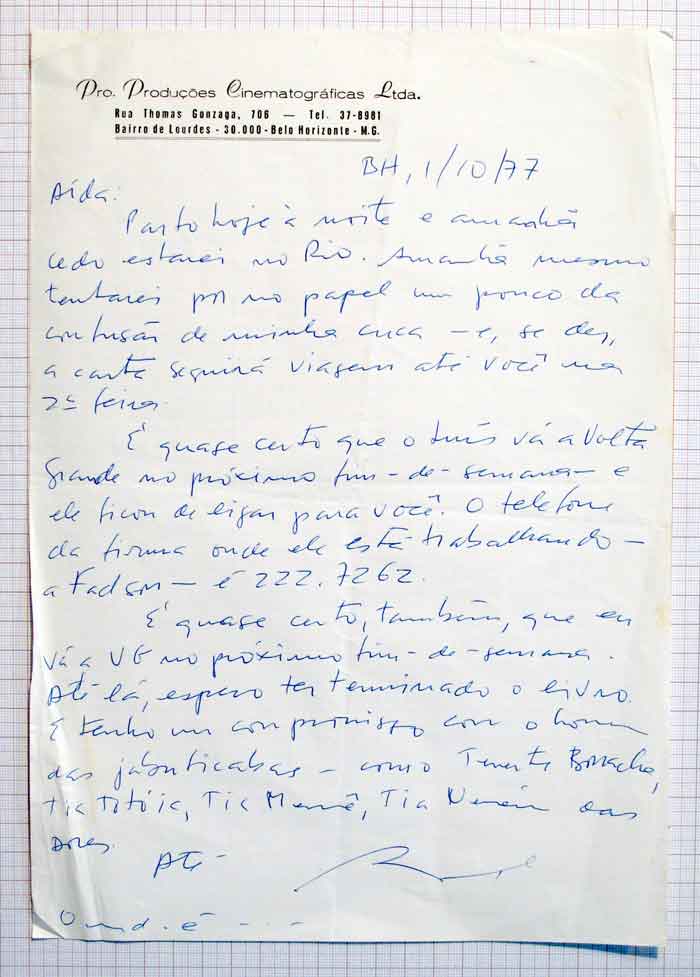 Pro. Produções Cinematográficas Ltda.
Rua Thomas Gonzaga, 706 — Tel. 37-8981
Bairro de Lourdes - 30.000 - Belo Horizonte - M.G.
BH, 1/10/77
Aída:
Parto hoje à noite e amanhã
cedo estarei no Rio. Amanhã mesmo
tentarei pôr no papel um pouco da
confusão de minha cuca — e, se der,
a carta seguirá viagem até você na
2ª feira.
É quase certo que o Luís vá a Volta
Grande no próximo fim-de-semana — e
ele ficou de ligar para você. O telefone
da firma onde ele está trabalhando —
a — é 222.7262.
É quase certo, também, que eu
vá a VG no próximo fim-de-semana.
Até lá, espero ter terminado o livro.
E tenho um compromisso com o homem
das jabuticabas — como Tenente Borracha,
Tia Totóia, Tia Memê, Tia Neném das
Dores.
Até